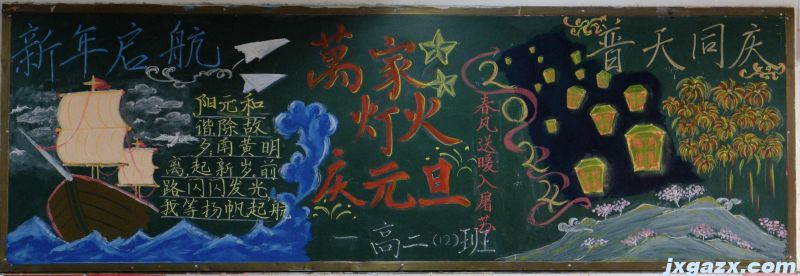 新年启航
阳元和
谐除故
夕南黄明
离起新岁前
路闪闪发光
我等扬帆起航
萬家
灯火
庆元旦
一高二(12)班
2024
春风送暖入屠苏
普天同庆
www.jxgazx.com